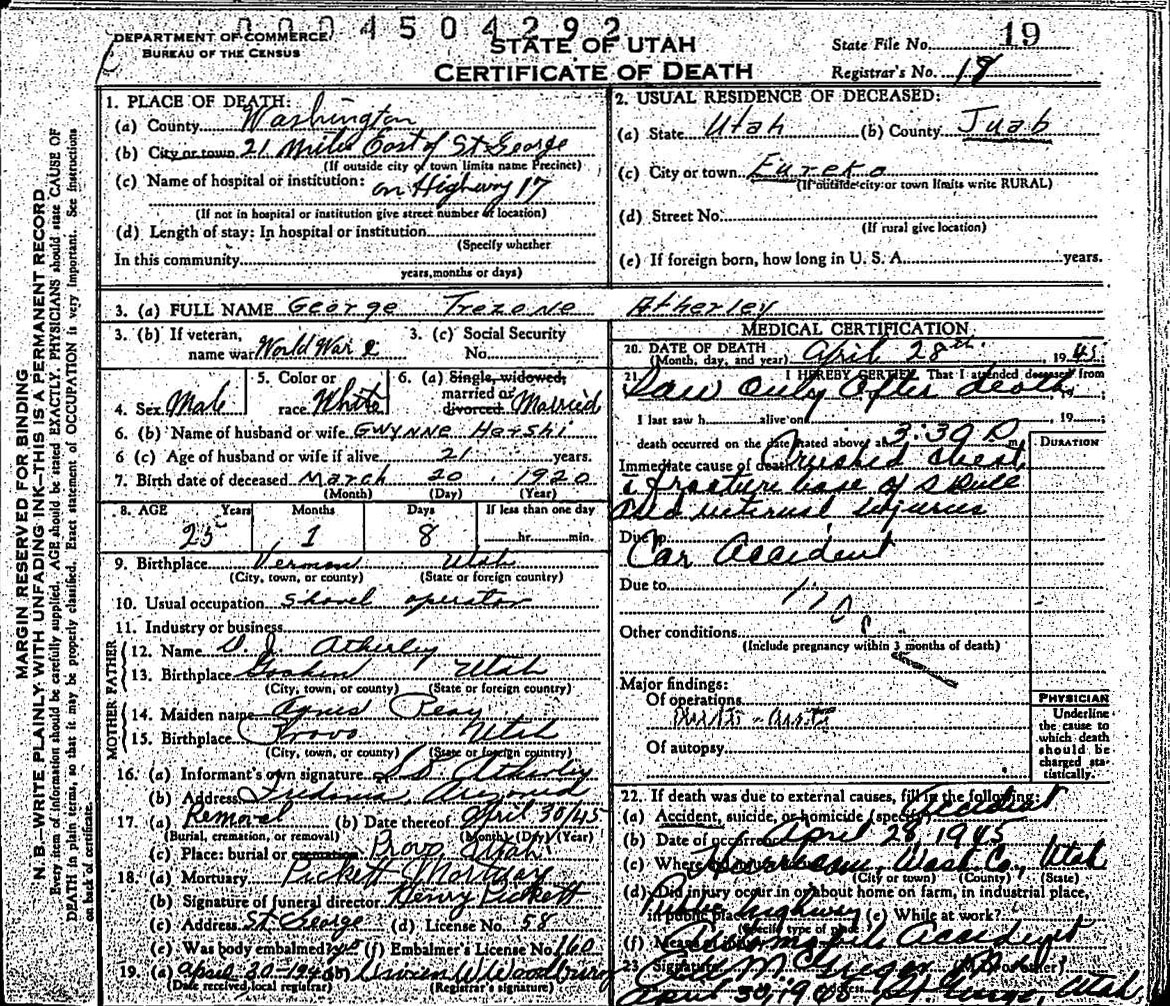 0004504292
DEPARTMENT OF COMMERCE
BUREAU OF THE CENSUS
STATE OF UTAH
CERTIFICATE OF DEATH
State File No. 19
Registrar's No. 18
MARGIN RESERVED FOR BINDING
N. B.—WRITE PLAINLY, WITH UNFADING INK—THIS IS A PERMANENT RECORD
Every item of information should be carefully supplied. AGE should be stated EXACTLY. PHYSICIANS should state CAUSE OF
DEATH in plain terms, so that it may be properly classified. Exact statement of OCCUPATION is very important. See instructions
on back of certificate.
1. PLACE OF DEATH:
(a) County Washington
(b) City or town 21 Miles East of St George
(If outside city or town limits name Precinct)
(c) Name of hospital or institution: on Highway 17
(If not in hospital or institution give street number or location)
(d) Length of stay: In hospital or institution
(Specify whether
In this community
years, months or days)
2. USUAL RESIDENCE OF DECEASED:
(a) State Utah (b) County Juab
(c) City or town Eureka
(If outside city or town limits write RURAL)
(d) Street No.
(If rural give location)
(e) If foreign born, how long in U. S. A. years.
3. (a) FULL NAME George Trezone Atherley
3. (b) If veteran, name war World War 2 3. (c) Social Security No.
4. Sex Male 5. Color or race White 6. (a) Single, widowed, married or divorced Married
6. (b) Name of husband or wife GWYNNE Hershi
6 (c) Age of husband or wife if alive 21 years.
7. Birth date of deceased March 20, 1920
(Month) (Day) (Year)
8. AGE Years Months Days If less than one day
25 1 8 hr. min.
9. Birthplace Vernon Utah
(City, town, or county) (State or foreign country)
10. Usual occupation shovel operator
11. Industry or business
FATHER
12. Name Atherley
13. Birthplace Goshen Utah
(City, town, or county) (State or foreign country)
MOTHER
14. Maiden name Agnes Peay
15. Birthplace Provo Utah
(City, town, or county) (State or foreign country)
16. (a) Informant's own signature Atherley
(b) Address Fredonia Arizona
17. (a) Removal (b) Date thereof April 30/45
(Burial, cremation, or removal) (Month) (Day) (Year)
(c) Place: burial or cremation Provo Utah
18. (a) Mortuary Pickett Mortuary
(b) Signature of funeral director Henry Pickett
(c) Address St George (d) License No. 58
(e) Was body embalmed yes (f) Embalmer's License No. 160
19. (a) April 30-1945 (b) Woodbury
(Date received local registrar) (Registrar's signature)
MEDICAL CERTIFICATION
20. DATE OF DEATH
(Month, day, and year) April 28th 1945
21. I HEREBY CERTIFY, That I attended deceased from
Saw only after death, 19
I last saw h alive on 19
death occurred on the date stated above at 3:30 P m.
DURATION
Immediate cause of death Crushed chest
fracture base of skull
and internal injuries
Due to
Car Accident
Due to
Other conditions
(Include pregnancy within 3 months of death)
Major findings:
Of operations
Of autopsy
PHYSICIAN
Underline
the cause to
which death
should be
charged sta-
tistically.
22. If death was due to external causes, fill in the following:
(a) Accident, suicide, or homicide (specify) Accident
(b) Date of occurrence April 28, 1945
(c) Where did injury occur Wash Co, Utah
(City or town) (County) (State)
(d) Did injury occur in or about home on farm, in industrial place,
in public place Public highway (e) While at work?
(Specify type of place)
(f) Means of injury Automobile Accident
23. Signature McGregor
April 30, 1945 Address St George, Utah